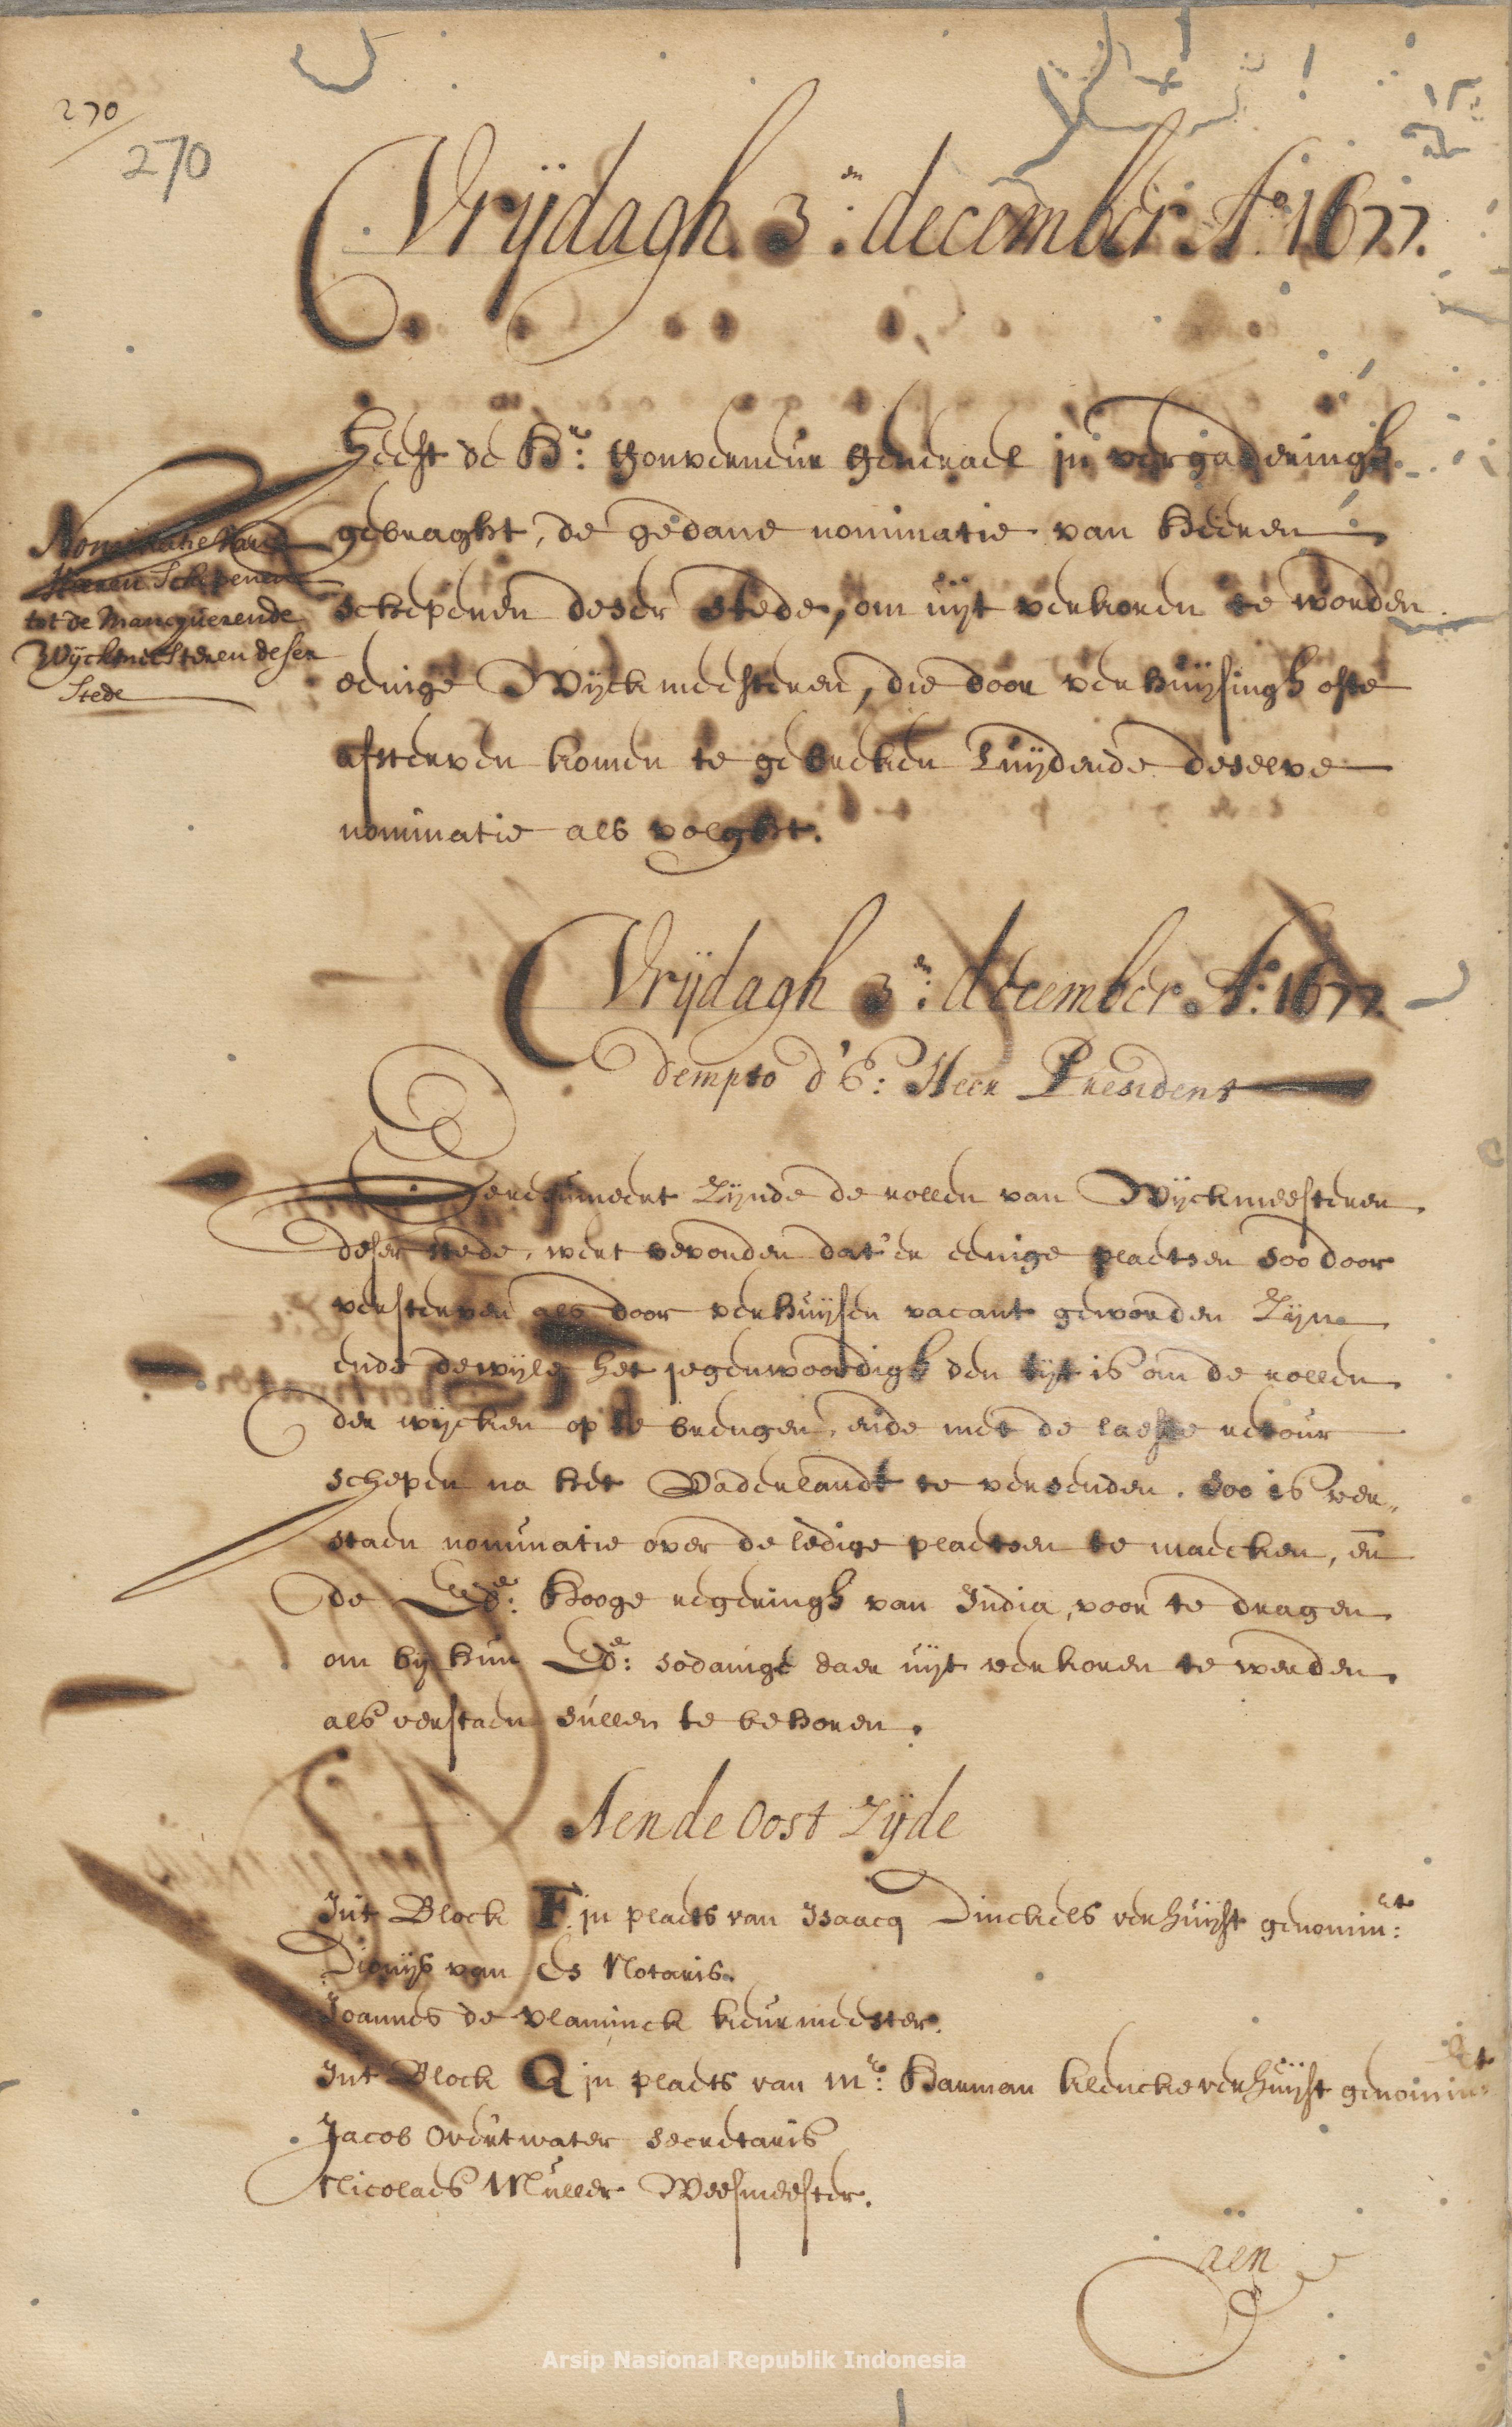 270
270
Vrijdagh 3:en december Ao 1677.
Heeft de Hr: Gouverneur generael in vergaderingh
gebraght, de gedane nominatie van Heeren
schepenen deser stede, om uijt verkoren te worden
eenige Wijckmeesteren, die door verhuijsingh ofte
afsterven komen te gebreken Luijdende deselve
nominatie als volght.
Nominatie van
Heeren Schepenen
tot de mancquerende
Wijckmeesteren deser
Stede
Vrijdagh 3:en december Ao: 1677.
dempto d'E: Heer President
Geresumeert Zijnde de rollen van Wijckmeesteren
deser stede, wert bevonden dat'er eenige plaetsen soo door
versterven als door verhuijsen vacant geworden Zijn
ende dewijle het jegenwoordigh den tijt is om de rollen
der wijcken op te brengen, ende met de laeste retour
schepen na het Vaderlandt te versenden. soo is ver„
staen nominatie over de ledige plaetsen te maecken, en
de Ede: Hooge regeringh van India, voor te dragen
om bij hun Ede: sodanige daer uijt verkoren te werden
als verstaen sullen te behoren.
Aen de Oost Zijde
Int Block F. in plaets van Isaacq Dinckels verhuijst genomin:eert
Dionijs van Es Notaris.
Joannes de vlaminck keurmeester.
Int Block Q in plaets van mr: Harman klencke verhuijst genomin:eert
Jacob Overtwater secretaris
Nicolaes Muller Weesmeester.
aen
Arsip Nasional Republik Indonesia